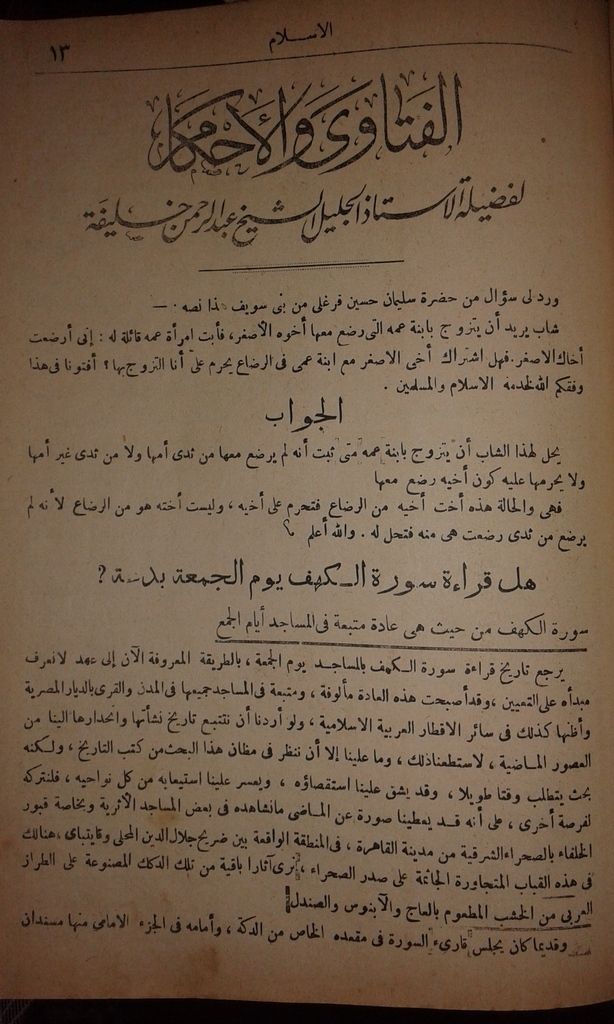 الاسلام
١٣
الفتاوى والأحكام
لفضيلة الاستاذ الجليل الشيخ عبد الرحمن خليفة
ورد لى سؤال من حضرة سليمان حسين فرغلى من بنى سويف هذا نصه . —
شاب يريد أن يتزوج بابنة عمه التى رضع معها أخوه الأصغر، فأبت امرأة عمه قائلة له : إنى أرضعت
أخاك الاصغر. فهل اشتراك أخى الاصغر مع ابنة عمى فى الرضاع يحرم علىّ أنا التزوج بها ؟ أفتونا فى هذا
وفقكم الله لخدمة الاسلام والمسلمين .
الجواب
يحل لهذا الشاب أن يتزوج بابنة عمه متى ثبت أنه لم يرضع معها من ثدى أمها ولا من ثدى غير أمها
ولا يحرمها عليه كون أخيه رضع معها
فهى والحالة هذه أخت أخيه من الرضاع فتحرم على أخيه ، وليست أخته هو من الرضاع لأنه لم
يرضع من ثدى رضعت هى منه فتحل له . والله أعلم
هل قراءة سورة الكهف يوم الجمعة بدعة ؟
سورة الكهف من حيث هى عادة متبعة فى المساجد أيام الجمع
يرجع تاريخ قراءة سورة الكهف بالمساجد يوم الجمعة ، بالطريقة المعروفة الآن إلى عهد لا نعرف
مبدأه على التعيين ، وقد أصبحت هذه العادة مألوفة ، ومتبعة فى المساجد جميعها فى المدن والقرى بالديار المصرية
وأظنها كذلك فى سائر الاقطار العربية الاسلامية ، ولو أردنا أن نتتبع تاريخ نشأتها وانحدارها الينا من
العصور الماضية ، لاستطعنا ذلك ، وما علينا إلا أن ننظر فى مظان هذا البحث من كتب التاريخ ، ولكنه
بحث يتطلب وقتا طويلا ، وقد يشق علينا استقصاؤه ، ويعسر علينا استيعابه من كل نواحيه ، فلنتركه
لفرصة أخرى ، على أنه قد يعطينا صورة عن الماضى ما نشاهده فى بعض المساجد الأثرية وبخاصة قبور
الخلفاء بالصحراء الشرقية من مدينة القاهرة ، فى المنطقة الواقعة بين ضريح جلال الدين المحلى وقايتباى ، هنالك
فى هذه القباب المتجاورة الجاثمة على صدر الصحراء ، نرى آثارا باقية من تلك الدكك المصنوعة على الطراز
العربى من الخشب المطعوم بالعاج والآبنوس والصندل
وقديما كان يجلس قارىء السورة فى مقعده الخاص من الدكة ، وأمامه فى الجزء الامامى منها مسندان